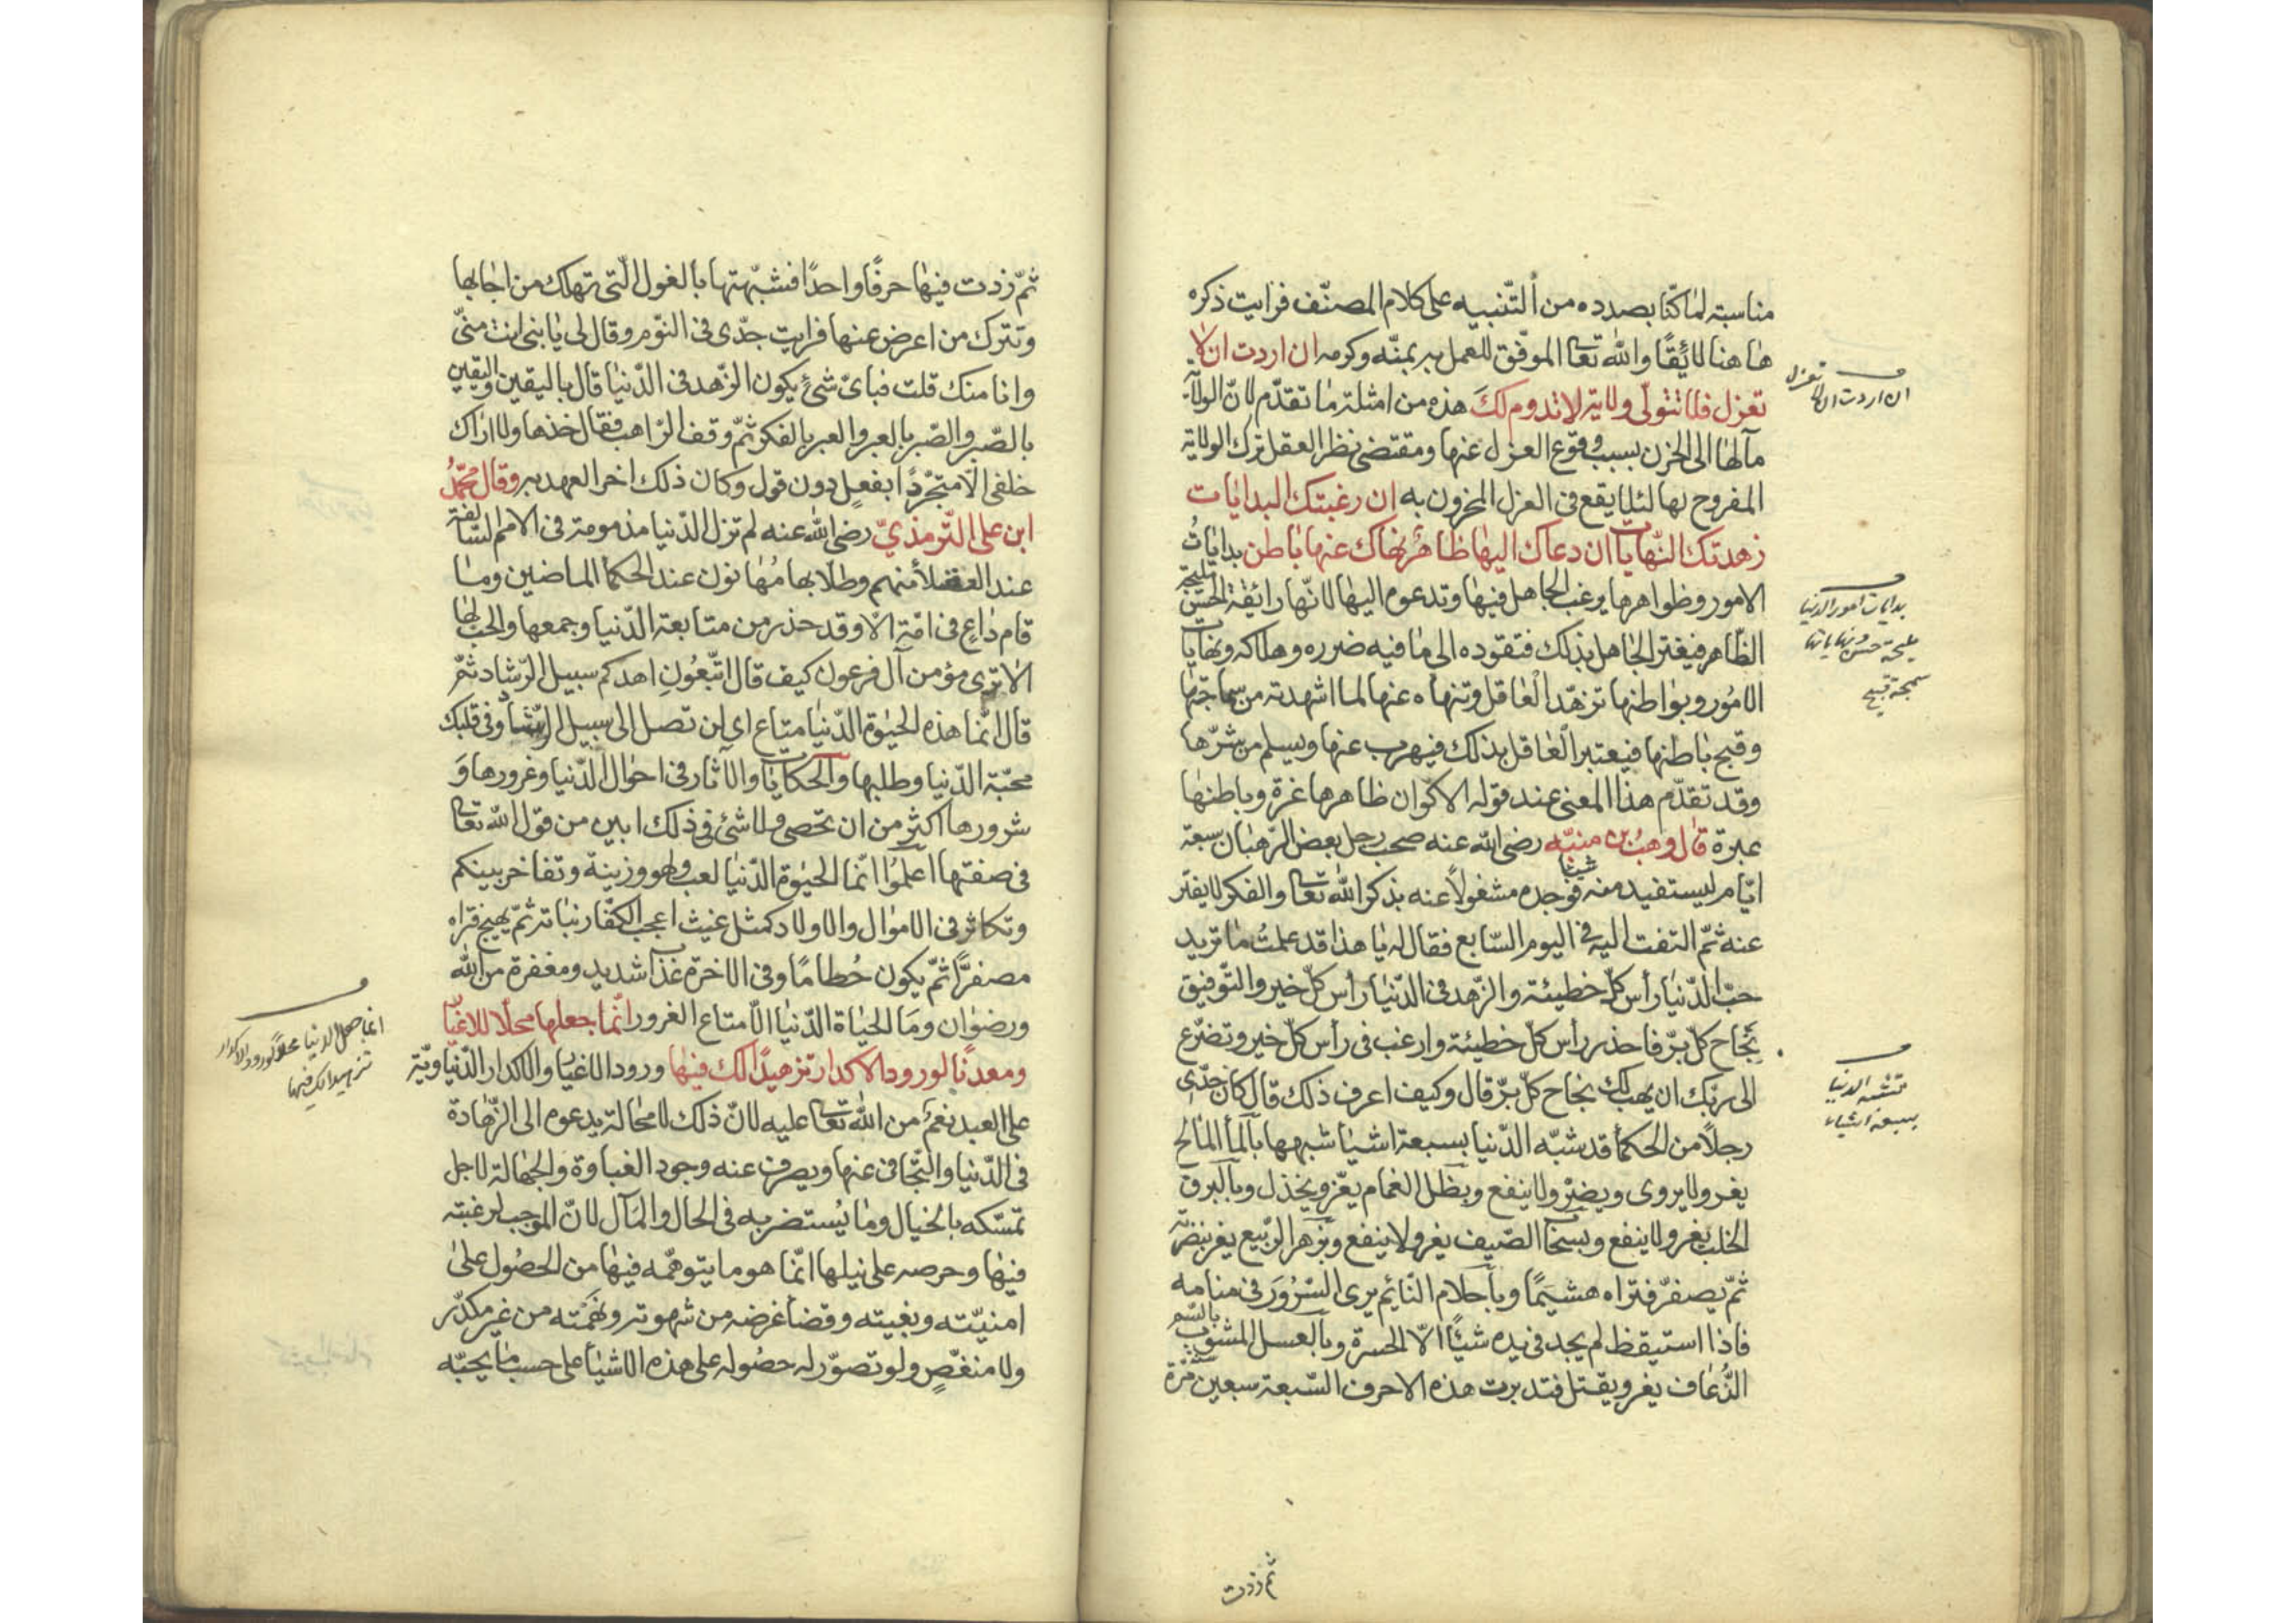 مناسبة لما كنّا بصدده من التّنبيه على كلام المصنّف فرايت ذكره
هاهنا لائقًا والله تعا الموفّق للعمل به بمنّه وكرمه ان اردت ان لا
تعزل فلا تتولّى ولاية لا تدوم لك هذه من امثلة ما تقدّم لانّ الولاية
مآلها الى الحزن بسبب وقوع العزل عنها ومقتضى نظر العقل ترك الولاية
المفروح لها لئلا يقع فى العزل المحزون به ان رغبتك البدايات
زهدتك النّهايات ان دعاك اليها ظاهر نهاك عنها باطن بدايات
الامور وظواهرها يرغب الجاهل فيها وتدعوه اليها لانّها رائقة الحسن مليحة
الظّاهر فيغتر الجاهل بذلك فتقوده الى ما فيه ضرره وهلاكه ونهايات
الامور وبواطنها تزهّد العاقل وتنهاه عنها لما اشهدته من سماجتها
وقبح باطنها فيعتبر العاقل بذلك فيهرب عنها ويسلم من شرّها
وقد تقدّم هذا المعنى عند قوله الاكوان ظاهرها غرة وباطنها
عبرة قال وهب بن منبّه رضى الله عنه صحب رجل بعض الرّهبان سبعة
ايّام ليستفيد منه شيئا فوجده مشغولاً عنه بذكر الله تعا والفكر لا يفتر
عنه ثمّ التفت اليه فى اليوم السّابع فقال له يا هذا قد علمت ما تريد
حبّ الدّنيا رأس كلّ خطيئة والزّهد فى الدّنيا رأس كلّ خير والتّوفيق
نجاح كلّ برّ فاحذر رأس كلّ خطيئة وارغب فى رأس كلّ خير وتضرّع
الى ربّك ان يهب لك نجاح كلّ برّ قال وكيف اعرف ذلك قال كان جدّى
رجلاً من الحكما قد شبّه الدّنيا بسبعة اشيا شبهها بالمأ المالح
يغر ولا يروى ويضرّ ولا ينفع وبظل الغمام يغرّ ويخذل وبالبرق
الخلب يغر ولا ينفع وبسحاب الصّيف يغر ولا ينفع وبزهر الرّبيع يغر بنضرته
ثمّ يصفرّ فتراه هشيمًا وبأحلام النّائم يرى السّرور فى منامه
فاذا استيقظ لم يجد فى يده شئًا الّا الحسرة وبالعسل المشوب بالسّم
الذّعاف يغر ويقتل فتدبرت هذه الاحرف السّبعة سبعين سنة
ثم زدت
ان اردت ان لا تعزل
بدايات امور الدنيا
مليحة حسن ونهاياتها
سمجة قبيح
تشبه الدنيا
بسبعة اشياء
ثمّ زدت فيها حرفًا واحدًا فشبّهتها بالغول الّتى تهلك من اجابها
وتترك من اعرض عنها فرايت جدّى فى النّوم وقال لى يا بنى انت منّى
وانا منك قلت فباىّ شئ يكون الزّهد فى الدّنيا قال باليقين واليقين
بالصّبر والصّبر بالعبر والعبر بالفكر ثمّ وقف الرّاهب فقال خذها ولا اراك
خلفى الّا متجرّدًا بفعل دون قول وكان ذلك اخر العهد به وقال محمّد
ابن على التّرمذىّ رضى الله عنه لم تزل الدّنيا مذمومة فى الامم السّالفة
عند العقلأ منهم وطلّابها مهانون عند الحكما الماضين وما
قام داع فى امّة الّا وقد حذر من متابعة الدّنيا وجمعها والحب لها
الا ترى مؤمن آل فرعون كيف قال اتّبعون اهدكم سبيل الرّشاد ثمّ
قال انّما هذه الحيوة الدّنيا متاع اى لن تصل الى سبيل الرّشاد وفى قلبك
محبّة الدّنيا وطلبها والحكايات والآثار فى احوال الدّنيا وغرورها و
شرورها اكثر من ان تحصى ولا شئ فى ذلك ابين من قول الله تعا
فى صفتها اعلموا انّما الحيوة الدّنيا لعب ولهو وزينة وتفاخر بينكم
وتكاثر فى الاموال والاولاد كمثل غيث اعجب الكفّار نباته ثمّ يهيج فتراه
مصفرًّا ثمّ يكون حطامًا وفى الاخرة عذاب شديد ومغفرة من الله
ورضوان وما الحياة الدّنيا الّا متاع الغرور انّما جعلها محلا للاغيار
ومعدنًا لورود الاكدار تزهيدًا لك فيها ورود الاغيار والاكدار الدّنياويّة
على العبد نعم من الله تعا عليه لانّ ذلك لا محالة يدعوه الى الزّهادة
فى الدّنيا والتّجافى عنها ويصرف عنه وجود الغباوة والجهالة لاجل
تمسّكه بالخيال وما يستضر به فى الحال والمآل لانّ الموجب لرغبته
فيها وحرصه على نيلها انّما هو ما يتوهّمه فيها من الحصول على
امنيّته وبغيته وقضا غرضه من شهوته ونهمته من غير مكدّر
ولا منغّص ولو تصوّر له حصوله على هذه الاشيا على حسب ما يحبّه
انما جعل الدنيا محلّاً لورود الاكدار
تزهيدا لك فيها